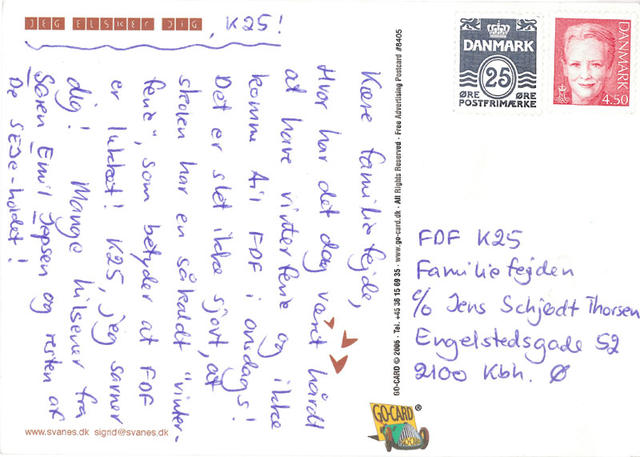 JEG ELSKER DIG, K25!
Kære familiefejde,
Hvor har det dog været hårdt
at have vinterferie og ikke
komme til FDF i onsdags!
Det er slet ikke sjovt, at
skolen har en såkaldt "vinter-
ferie", som betyder at FDF
er lukket! K25, jeg savner
dig! Mange hilsener fra
Søren Emil Jepsen og resten af
De SEJe-holdet!
www.svanes.dk sigrid@svanes.dk
GO-CARD © 2005 · Tel. +45 36 15 69 35 · www.go-card.dk · All Rights Reserved · Free Advertising Postcard #8405
DANMARK
25
ØRE ØRE
POSTFRIMÆRKE
DANMARK
4.50
FDF K25
Familiefejden
c/o Jens Schjødt Thorsen
Engelstedsgade 52
2100 Kbh. Ø
GO-CARD ®